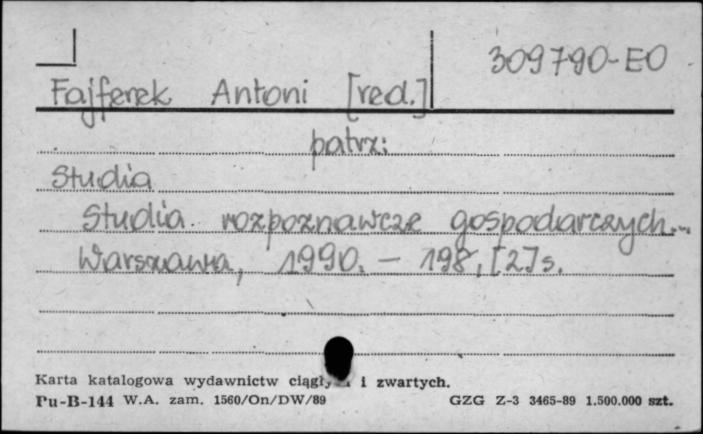 309790-EO
Fajferek Antoni [red.]
patrz:
Studia
Studia rozpoznawcze gospodarczych...
Warszawa, 1990. – 198, [2] s.
Karta katalogowa wydawnictw i zwartych.
Pu-B-144 W.A. zam. 1560/On/DW/89 GZG Z-3 3465-89 1.500.000 szt.